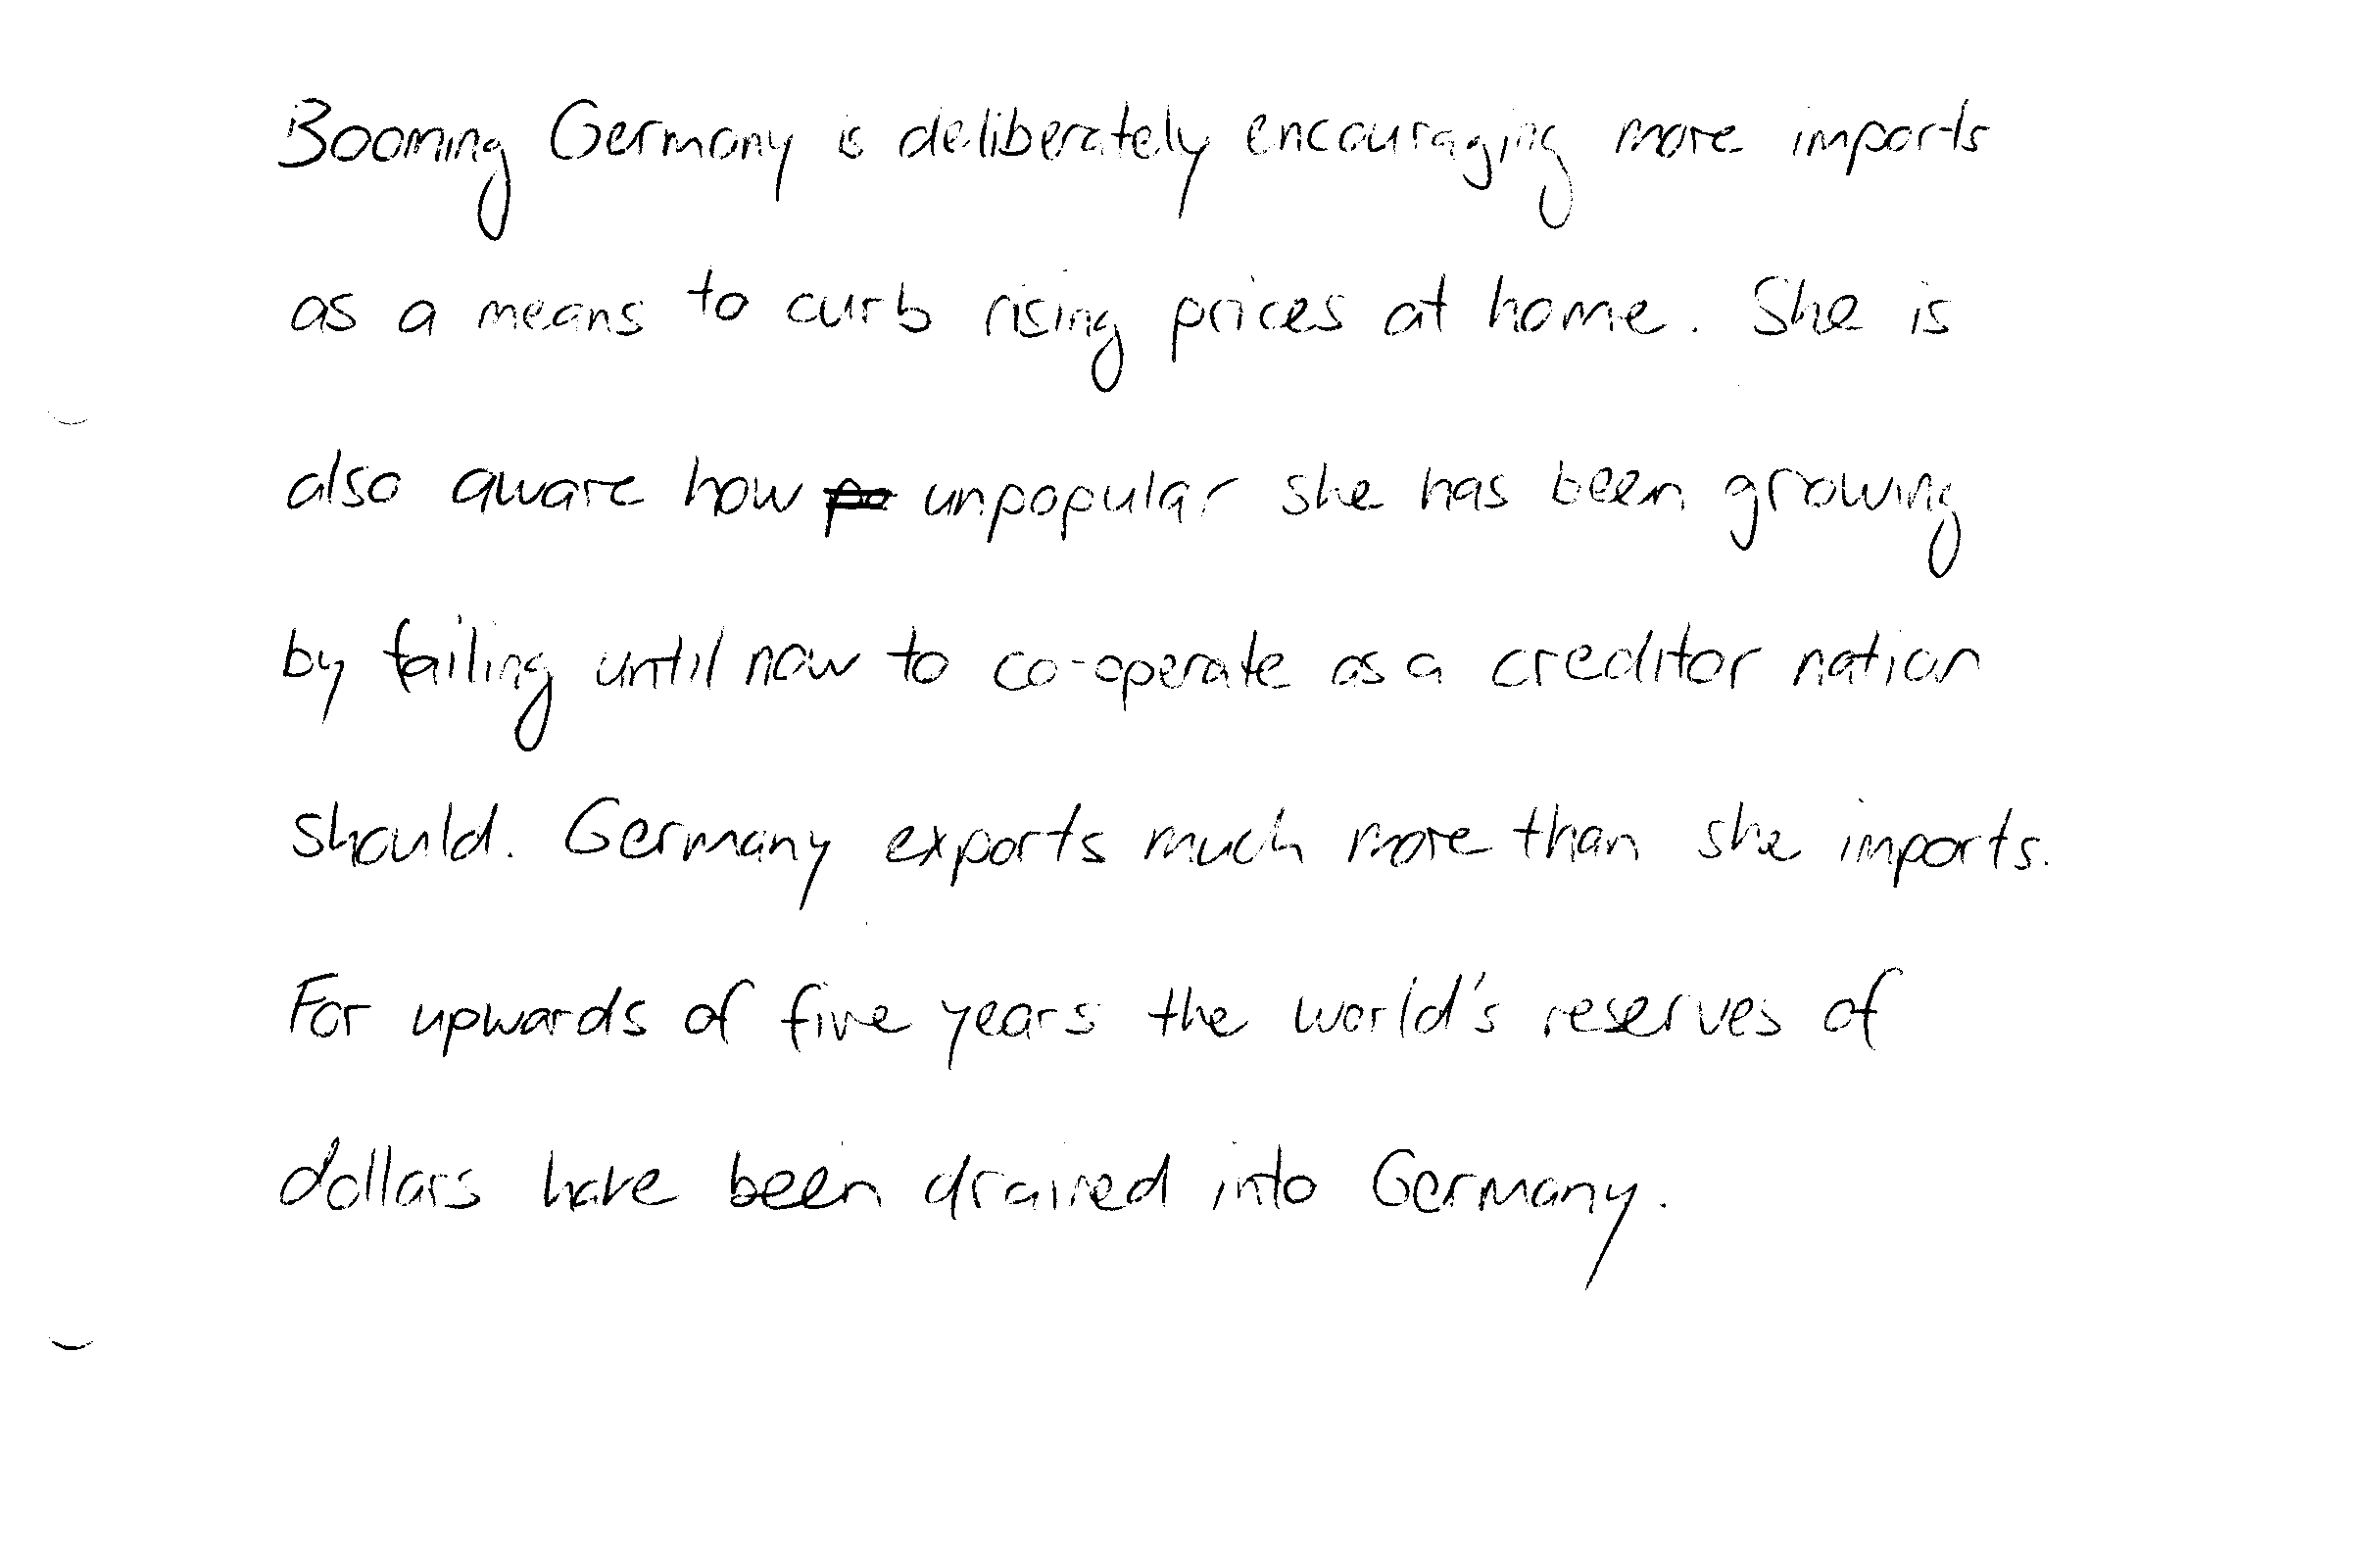 Booming Germany is deliberately encouraging more imports
as a means to curb rising prices at home. She is
also aware how po unpopular she has been growing
by failing until now to co-operate as a creditor nation
should. Germany exports much more than she imports.
For upwards of five years the world's reserves of
dollars have been drained into Germany.